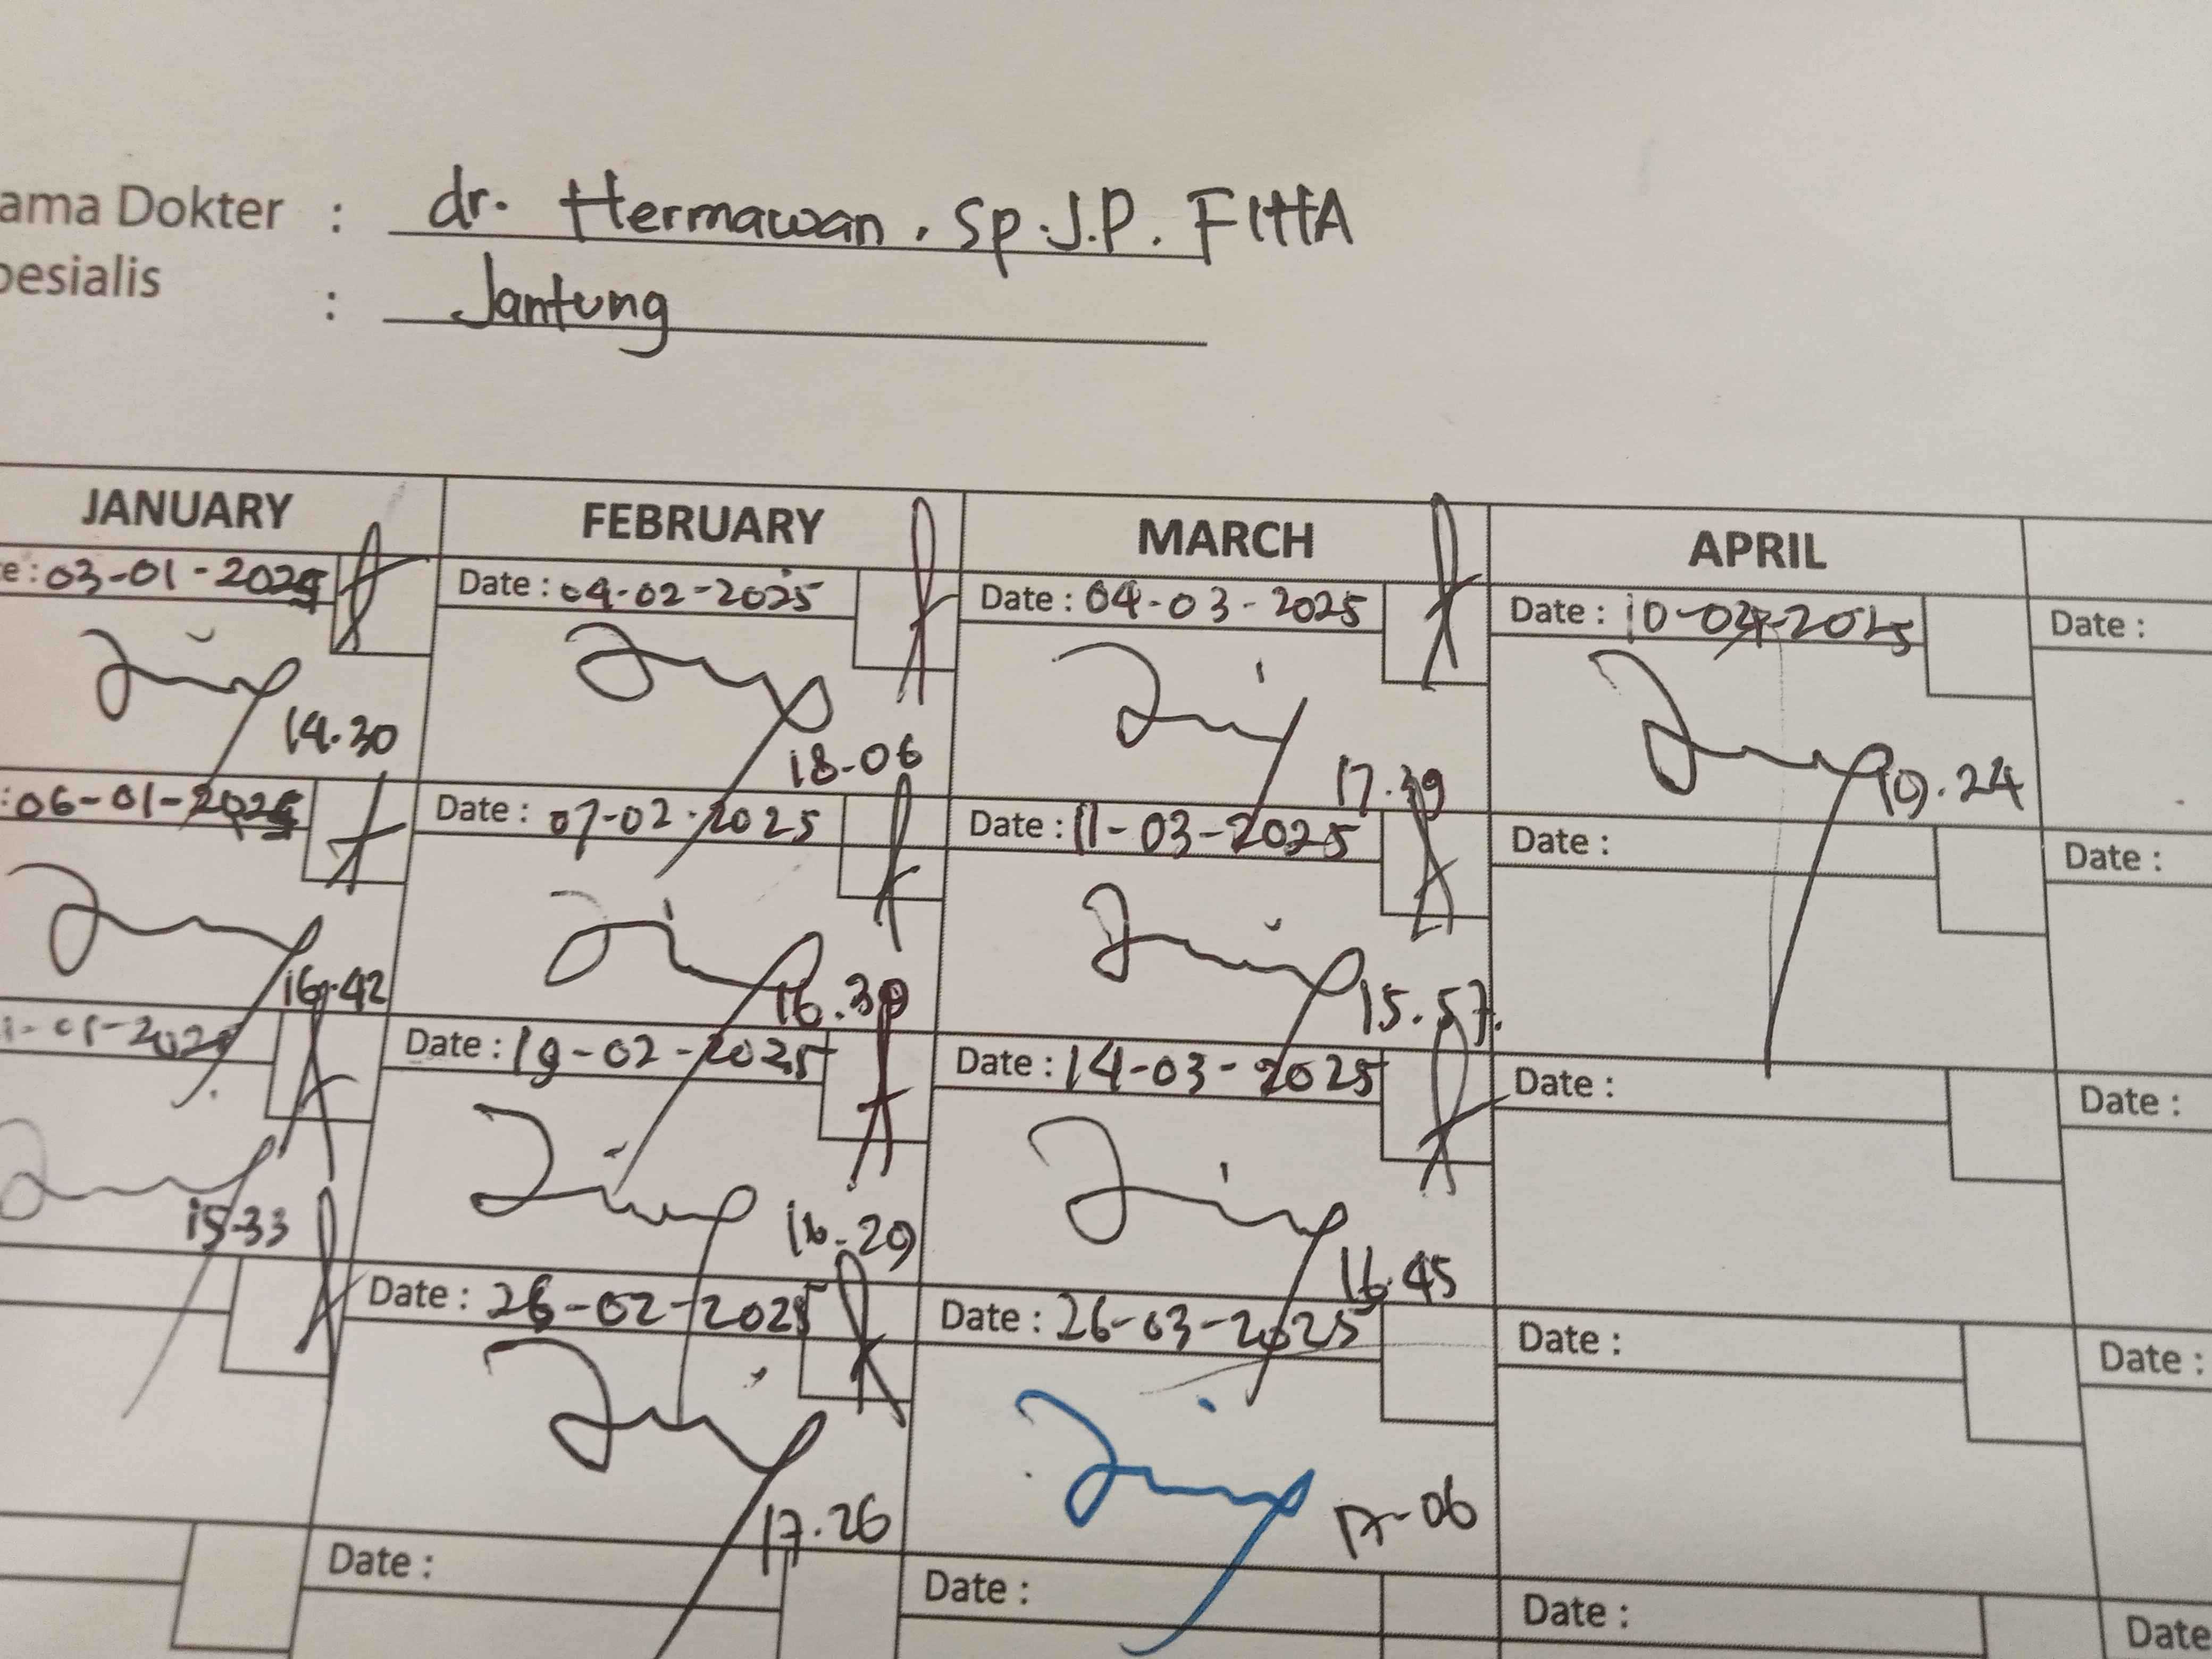 ama Dokter : dr. Hermawan, Sp.J.P. FIHA
pesialis : Jantung
JANUARY FEBRUARY MARCH APRIL
e: 03-01-2025 Date : 04-02-2025 Date : 04-03-2025 Date : 10-04-2025 Date :
14.30 18-06 17.39 19.24
: 06-01-2025 Date : 07-02-2025 Date : 11-03-2025 Date : Date :
16.42 16.30 15.57.
Date : 19-02-2025 Date : 14-03-2025 Date : Date :
15-33 16.29 16.45
Date : 26-02-2025 Date : 26-03-2025 Date : Date :
17.26 17-06
Date : Date : Date : Date